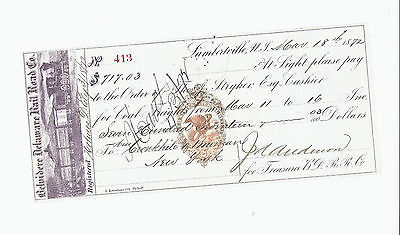 Belvidere Delaware Rail Road Co.
Registered
No 413
Lambertville, N.J. Mar 18th 1872
$717.03
At Sight please pay
to the Order of Stryker Esq Cashier
for Coal freights from Mar 11 to 16 Inc
Seven Hundred Seventeen 03/00 Dollars
To
New York
J A Anderson
for Treasurer B.D.R.R.Co